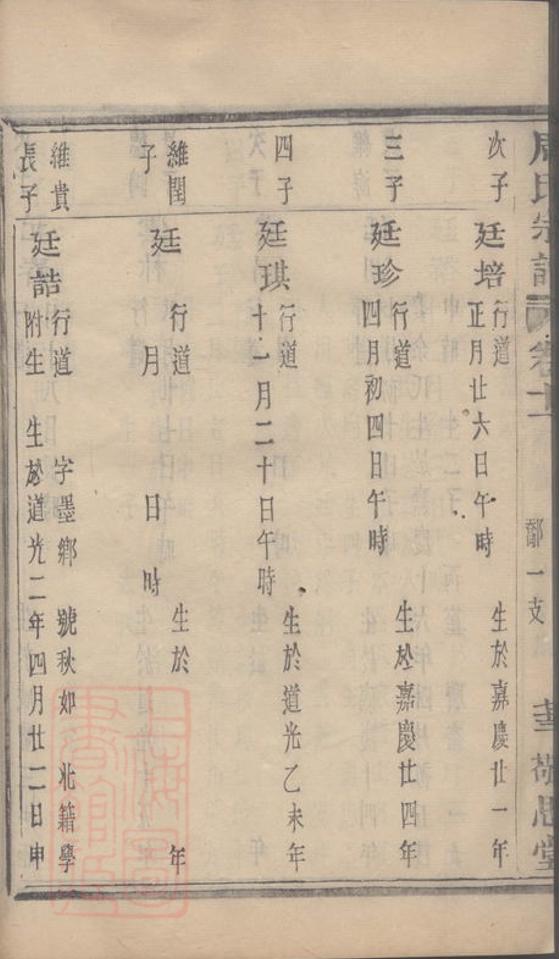 周氏宗譜 卷十二 鄒一支 敬思堂
次子 廷培 行道 生於嘉慶廿一年
正月廿六日午時
三子 廷珍 行道 生於嘉慶廿四年
四月初四日午時
四子 廷琪 行道 生於道光乙未年
十一月二十日午時
維閏子 廷 行道 生於 年
月 日 時
維貴長子 廷誥 行道 字墨鄉 號秋如 北籍學
附生 生於道光二年四月廿二日申